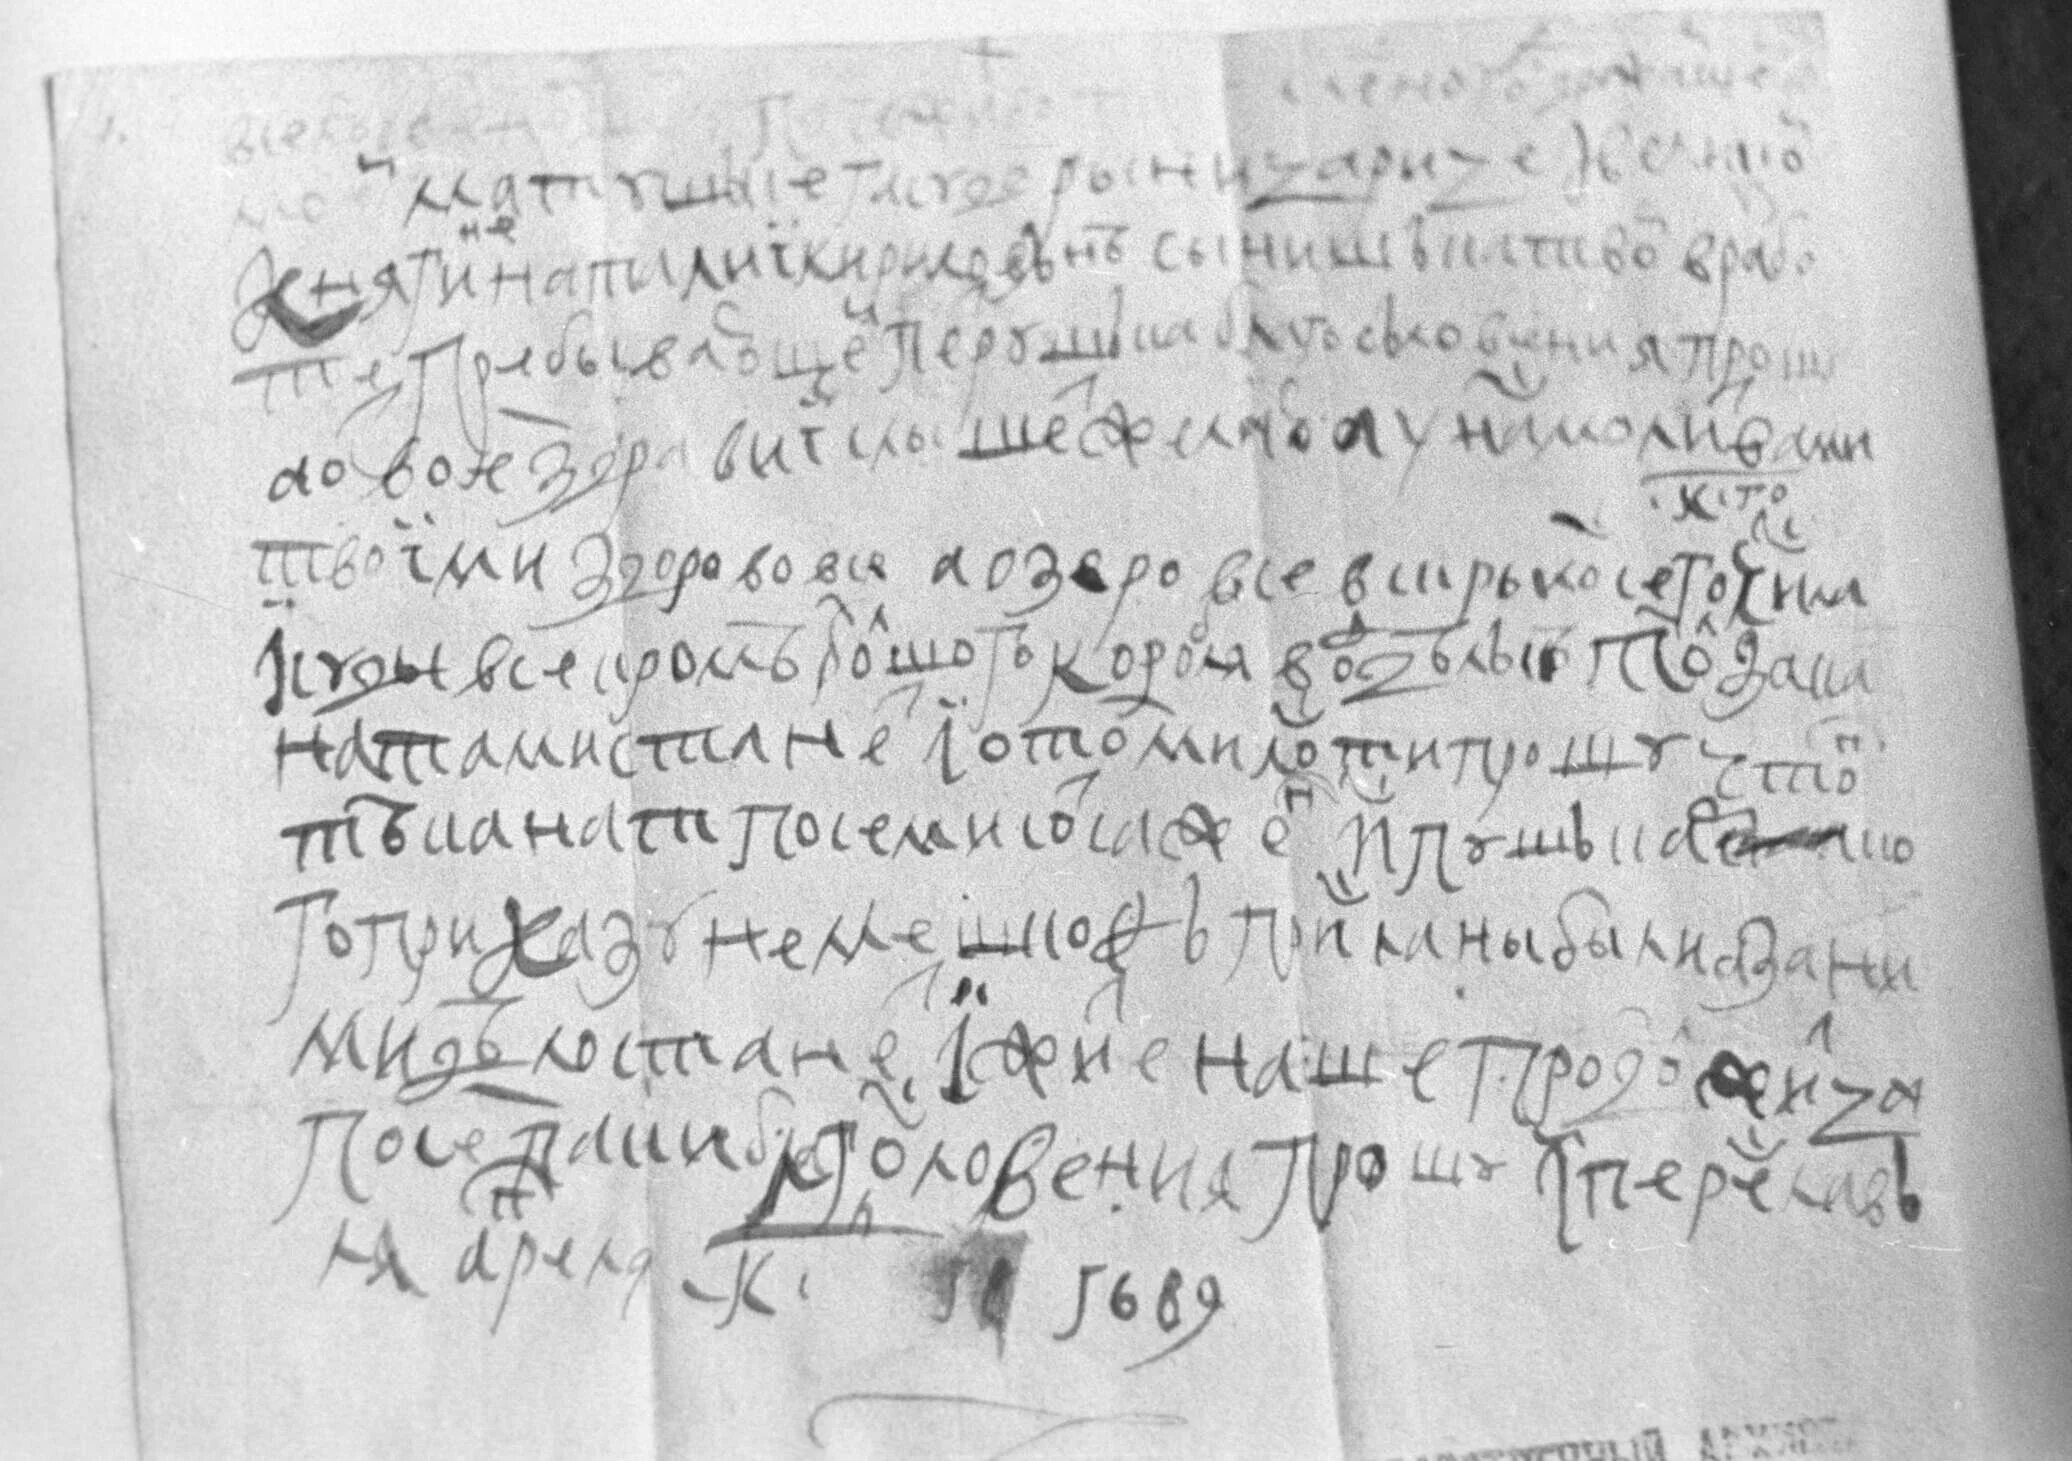 Паче телесного дражаше
моеи матушъке гасударыни царице Iвеликои
княгине наталиї кириловънѣ сынишъка твои в рабо
те Пребывающеи Петрушъка благословения прошу
а о твоем здравиї слышет желаю а у нас молитвами
твоїми здорово все а озеро все вскрылос сего к го числа
Ї суды все кромѣ болшого корабля в отдѣлке толко за ка
натами станет ї о том милости прошу чтоп
тѣ канаты по семисот сажен ис Пушъкарско
го приказу не мешкофъ присланы были а за ни
ми дѣло станет ї житие наше продолжитца
Посем паки благословения Прошу їс переславъ
ля апреля к 1689